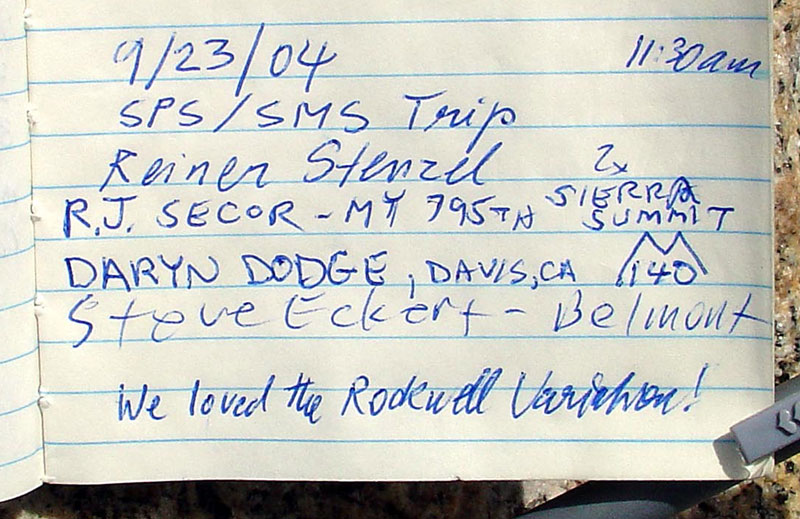 9/23/04 11:30am
SPS/SMS Trip
Reiner Stenzel 2x
R.J. SECOR - MY 795TH SIERRA SUMMIT
DARYN DODGE, DAVIS, CA 140
Steve Eckert - Belmont
We loved the Rockwell Variation!